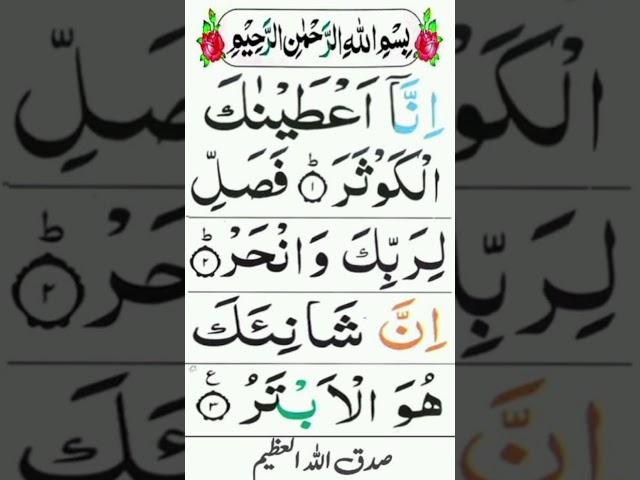 بِسْمِ اللهِ الرَّحْمٰنِ الرَّحِيْمِ
اِنَّاۤ اَعْطَيْنٰكَ
الْكَوْثَرَ ؕ۝۱ فَصَلِّ
لِرَبِّكَ وَانْحَرْ ؕ۝۲
اِنَّ شَانِئَكَ
هُوَ الْاَبْتَرُ ۝۳ ع
صدق الله العظيم